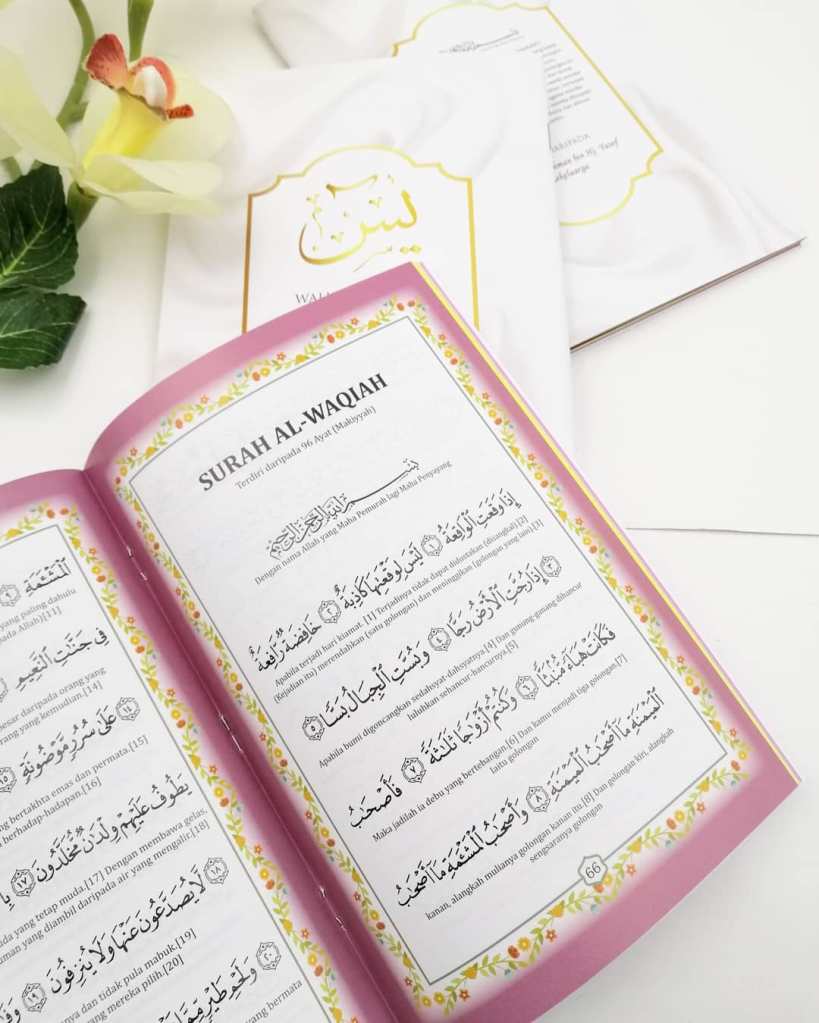 يس
SURAH AL-WAQIAH
Terdiri daripada 96 Ayat (Makiyyah)
بِسْمِ اللَّهِ الرَّحْمَٰنِ الرَّحِيمِ
Dengan nama Allah yang Maha Pemurah lagi Maha Penyayang
إِذَا وَقَعَتِ ٱلْوَاقِعَةُ ١ لَيْسَ لِوَقْعَتِهَا كَاذِبَةٌ ٢ خَافِضَةٌ رَّافِعَةٌ
Apabila terjadi hari kiamat. [1] Terjadinya tidak dapat didustakan (disangkal) [2]
(Kejadian itu) merendahkan (satu golongan) dan meninggikan (golongan yang lain) [3]
٣ إِذَا رُجَّتِ ٱلْأَرْضُ رَجًّا ٤ وَبُسَّتِ ٱلْجِبَالُ بَسًّا ٥
Apabila bumi digoncangkan sedahsyat-dahsyatnya.[4] Dan gunung-ganang dihancur
luluhkan sehancur-hancurnya.[5]
فَكَانَتْ هَبَآءً مُّنۢبَثًّا ٦ وَكُنتُمْ أَزْوَٰجًا ثَلَٰثَةً ٧ فَأَصْحَٰبُ
Maka jadilah ia debu yang bertebangan.[6] Dan kamu menjadi tiga golongan.[7]
Iaitu golongan
ٱلْمَيْمَنَةِ مَآ أَصْحَٰبُ ٱلْمَيْمَنَةِ ٨ وَأَصْحَٰبُ ٱلْمَشْـَٔمَةِ مَآ أَصْحَٰبُ
kanan, alangkah mulianya golongan kanan itu.[8] Dan golongan kiri, alangkah
sengsaranya golongan
66
ٱلْمَشْـَٔمَةِ ٩
yang paling dahulu
Allah).[11]
فِى جَنَّٰتِ ٱلنَّعِيمِ
besar daripada orang yang
yang kemudian.[14]
١٤ عَلَىٰ سُرُرٍ مَّوْضُونَةٍ ١٥
bertakhta emas dan permata.[15]
berhadap-hadapan.[16]
يَطُوفُ عَلَيْهِمْ وِلْدَٰنٌ مُّخَلَّدُونَ ١٧
yang tetap muda.[17] Dengan membawa gelas,
yang diambil daripada air yang mengalir.[18]
١٨ لَّا يُصَدَّعُونَ عَنْهَا وَلَا يُنزِفُونَ ١٩
dan tidak pula mabuk.[19]
yang mereka pilih.[20]
٢٠ وَلَحْمِ طَيْرٍ مِّمَّا
yang bermata